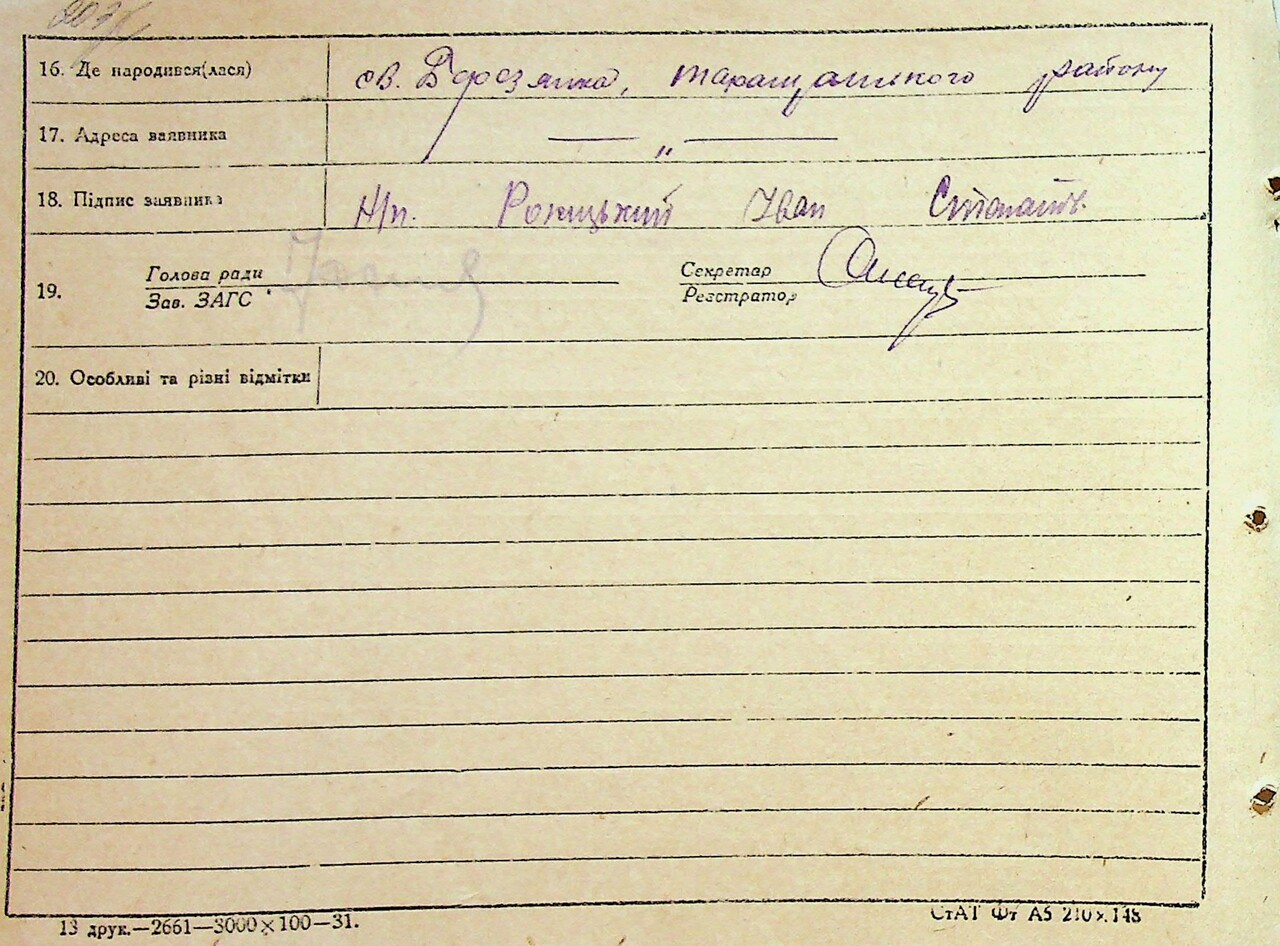 16. Де народився(лася) св. Березянка, таращанського району
17. Адреса заявника — „ —
18. Підпис заявника Н/п. Рокицький Іван
Голова ради Секретар
19. Зав. ЗАГС Реєстратор
20. Особливі та різні відмітки
13 друк.—2661—3000×100—31. СтАТ Фт А5 210×148